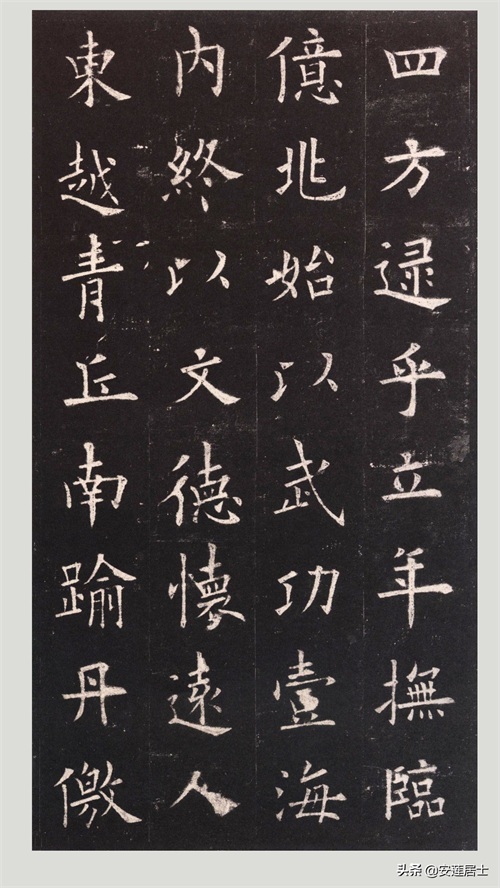 四方逯乎立年撫臨
億兆始以武功壹海
内終以文德懷遠人
東越青丘南踰丹儌
头条 @安莲居士